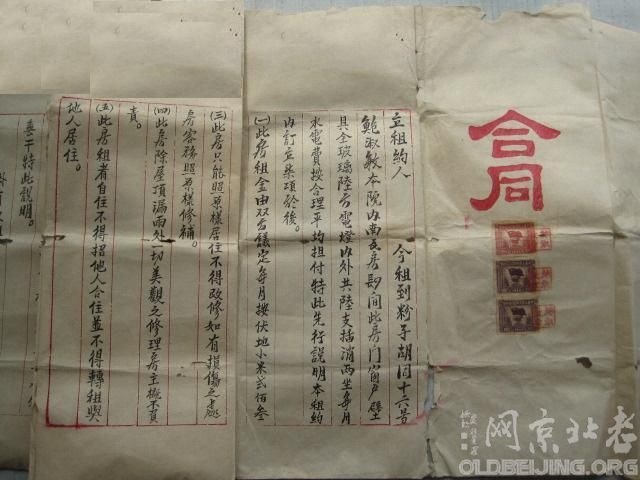 合同
立租約人 今租到粉子胡同十六号
鮑 本院内南瓦房 間此房門窗戶壁
具全玻璃陸 電燈内外共陸支插消两坐每月
水電費按合理平均担付特此先行説明本租約
内訂立条項於後。
(一)此房租金由双方議定每月按伏地小米弍佰叁
(三)此房只能照原樣居住不得改修如有損傷之處
房客務照原樣修補。
(四)此房除屋頂漏雨外一切美觀之修理房主概不負
責。
(五)此房租者自住不得招他人合住並不得轉租與
他人居住。
特此說明。
老北京网
OLDBEIJING.ORG